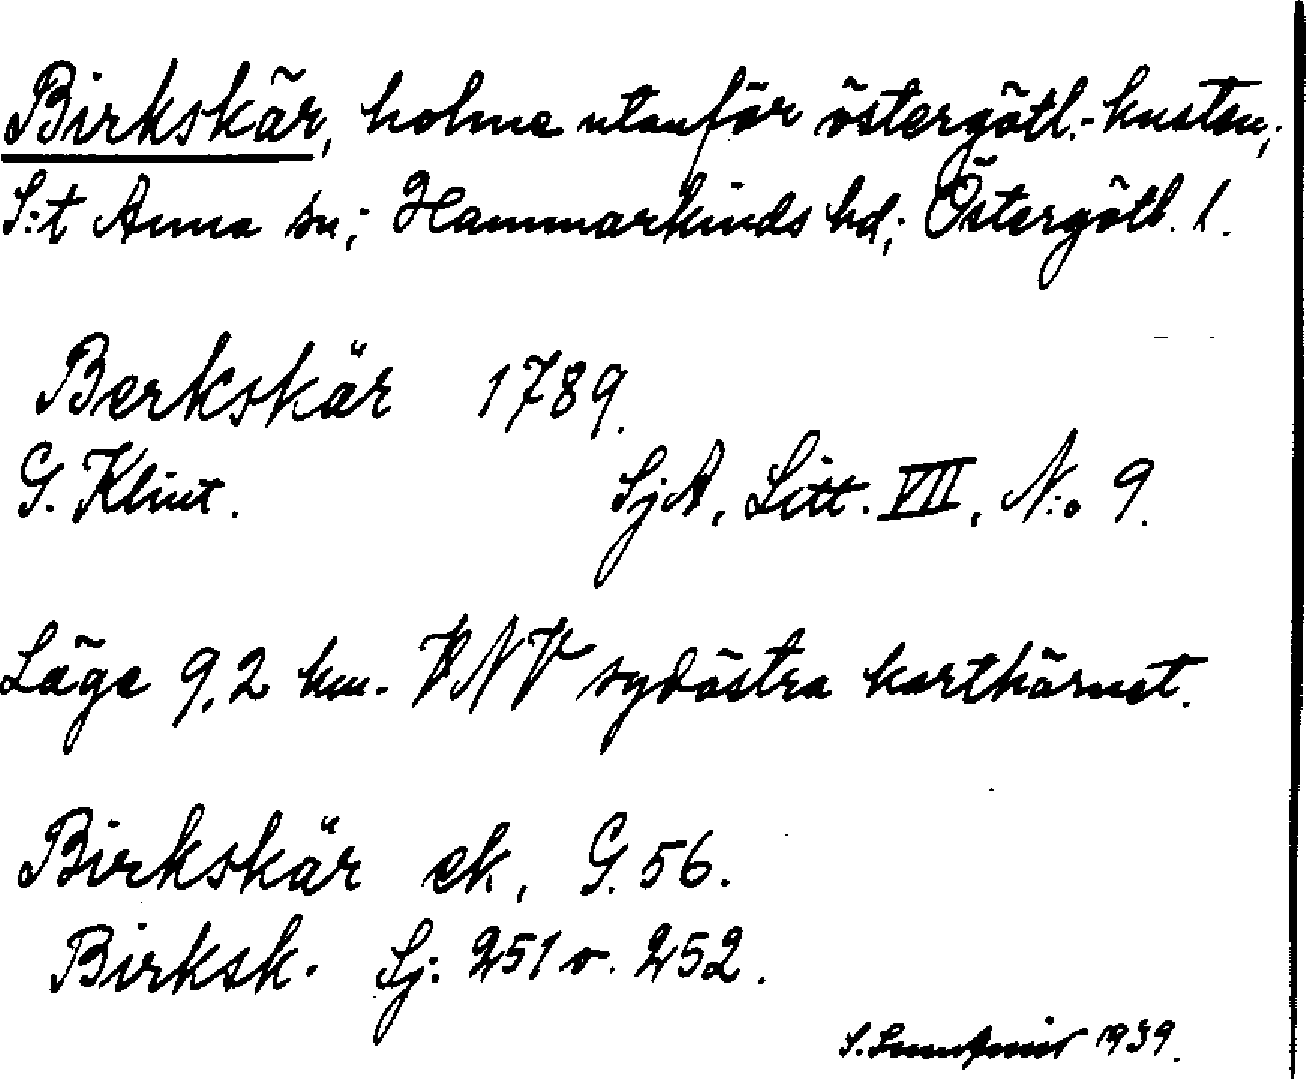 Birkskär, holme utanför östergötl.-kusten;
S:t Anna sn; Hammarkinds hd; Östergötl. l.
Berkskär 1789.
G. Klint. SjA, Litt. VII, N:o 9.
Läge 9,2 km. VNV sydöstra karthörnet.
Birkskär ek, G. 56.
Birksk. Sj: 251 o. 252.
S. 1939.